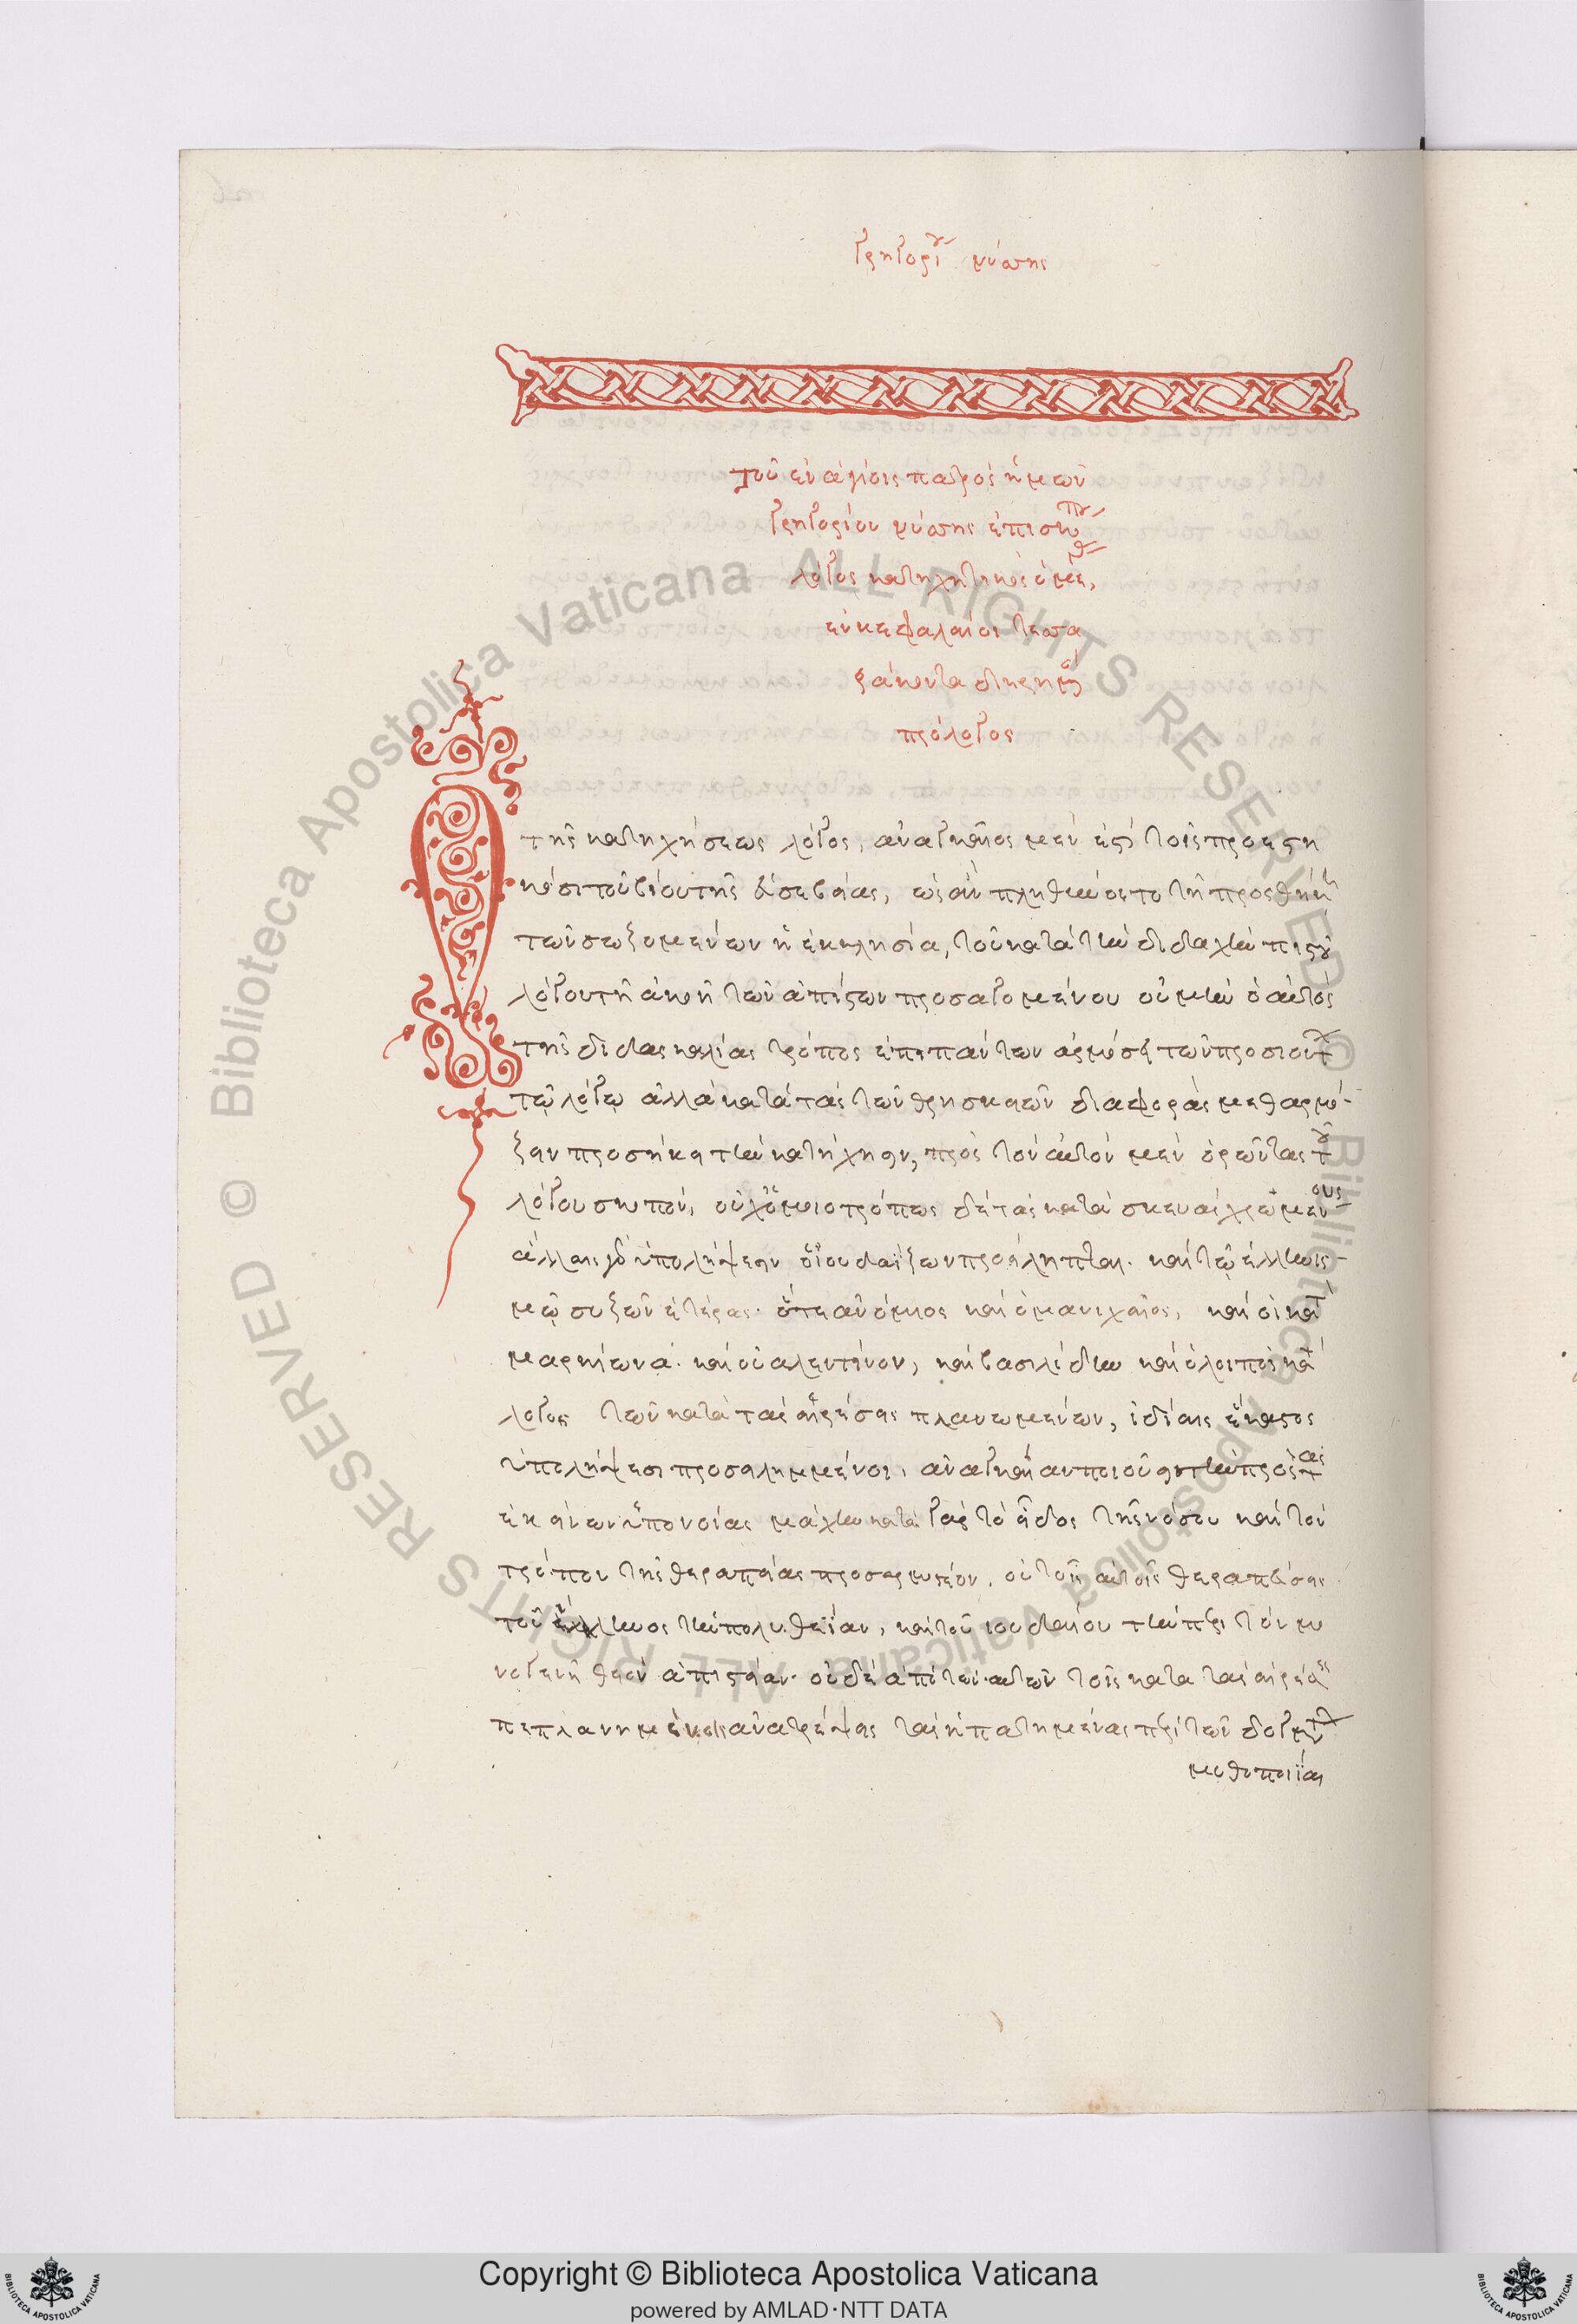 Γρηγορίου νύσσης
Τοῦ ἐν ἁγίοις πατρὸς ἡμῶν
Γρηγορίου νύσσης ἐπισκόπου
λόγος κατηχητικὸς
ἐν κεφαλαίοι τεσσα
ράκοντα διηρημένος
πρόλογος
Ὁ τῆς κατηχήσεως λόγος, ἀναγκαῖος μέν ἐστι τοῖς προεστη
κόσι τοῦ μυστηρίου τῆς εὐσεβείας, ὡς ἂν πληθύνοιτο τῇ προσθήκῃ
τῶν σωζομένων ἡ ἐκκλησία, τοῦ κατὰ τὴν διδαχὴν πιστοῦ
λόγου τῇ ἀκοῇ τῶν ἀπίστων προσαγομένου οὐ μὴν ὁ αὐτὸς
τῆς διδασκαλίας τρόπος ἐπὶ πάντων ἁρμόσει τῶν προσιόντων
τῷ λόγῳ ἀλλὰ κατὰ τὰς τῶν θρησκειῶν διαφορὰς μεθαρμό-
ζειν προσήκει τὴν κατήχησιν, πρὸς τὸν αὐτὸν μὲν ὁρῶντας τοῦ
λόγου σκοπόν, οὐχ ὁμοιοτρόπως δὲ ταῖς κατασκευαῖς χρωμένους
ἄλλαις γὰρ ὑπολήψεσιν ὁ ἰουδαΐζων προείληπται. καὶ τῷ ἑλληνισ-
μῷ συζῶν ἑτέραις. ὅ τε ἀνόμοιος καὶ ὁ μανιχαῖος, καὶ οἱ κατὰ
μαρκίωνα. καὶ οὐαλεντίνον, καὶ βασιλίδην καὶ ὁ λοιπὸς κατά
λογος τῶν κατὰ τὰς αἱρέσεις πλανωμένων, ἰδίαις ἕκαστος
ὑπολήψεσι προσειλημμένοι, ἀναγκαίαν ποιοῦσι τὴν πρὸς τὰς
ἐκείνων ὑπονοίας μάχην κατὰ γὰρ τὸ εἶδος τῆς νόσου καὶ τὸν
τρόπον τῆς θεραπείας προσαρμοστέον. οὐ τοῖς αὐτοῖς θεραπεύσεις
τοῦ ἕλληνος τὴν πολυθεΐαν, καὶ τοῦ ἰουδαίου τὴν περὶ τὸν μο
νογενῆ θεὸν ἀπιστίαν. οὐδὲ ἀπὸ τῶν αὐτῶν τοῖς κατὰ τὰς αἱρέσεις
πεπλανημένοις ἀνατρέψεις τὰς ἠπατημένας περὶ τῶν δογμάτων
μυθοποιΐας
Copyright © Biblioteca Apostolica Vaticana
powered by AMLAD·NTT DATA
© Biblioteca Apostolica Vaticana ALL RIGHTS RESERVED © Biblioteca Apostolica Vaticana ALL RIGHTS RESERVED
BIBLIOTECA APOSTOLICA VATICANA
BIBLIOTECA APOSTOLICA VATICANA